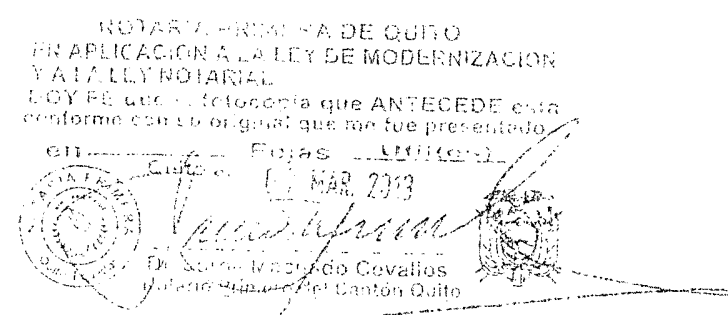 NOTARIA PRIMERA DE QUITO
EN APLICACION A LA LEY DE MODERNIZACION
Y A LA LEY NOTARIAL
DOY FE que la fotocopia que ANTECEDE está
conforme con su original que me fue presentado
en Fojas Util(es)
Quito a, MAR. 2013
Dr. Machado Cevallos
Notario Primero del Cantón Quito